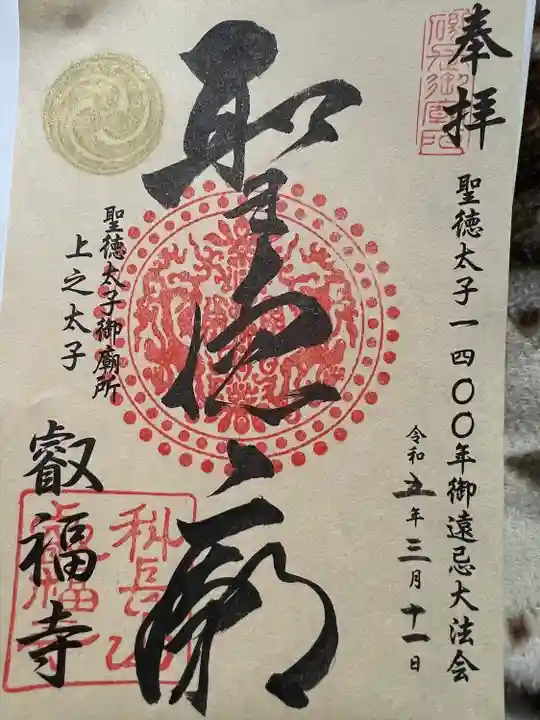 奉拝
聖徳太子一四〇〇年御遠忌大法会
令和五年三月十一日
聖徳廟
聖徳太子御廟所
上之太子
叡福寺
磯長御廟
科長山
叡福寺